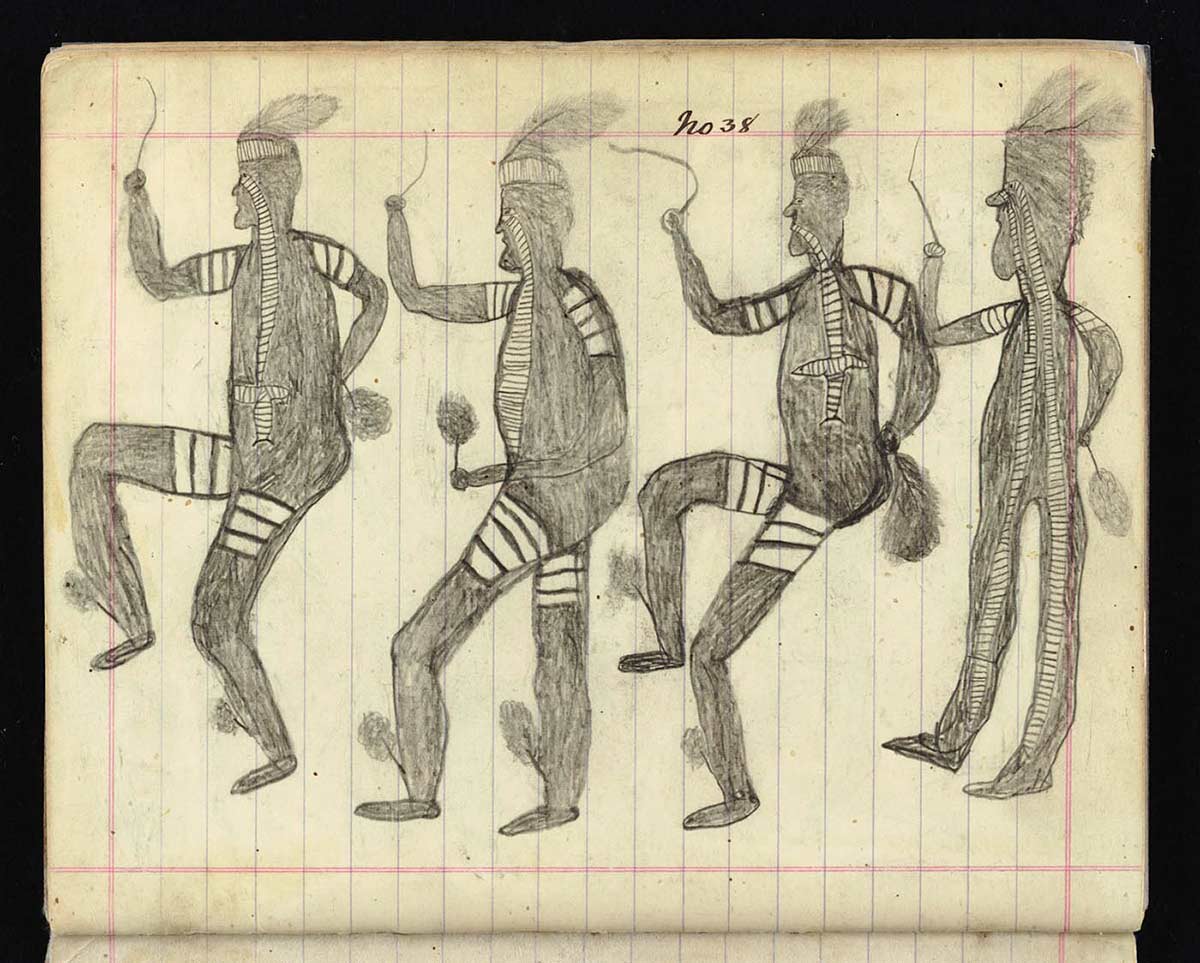 No 38